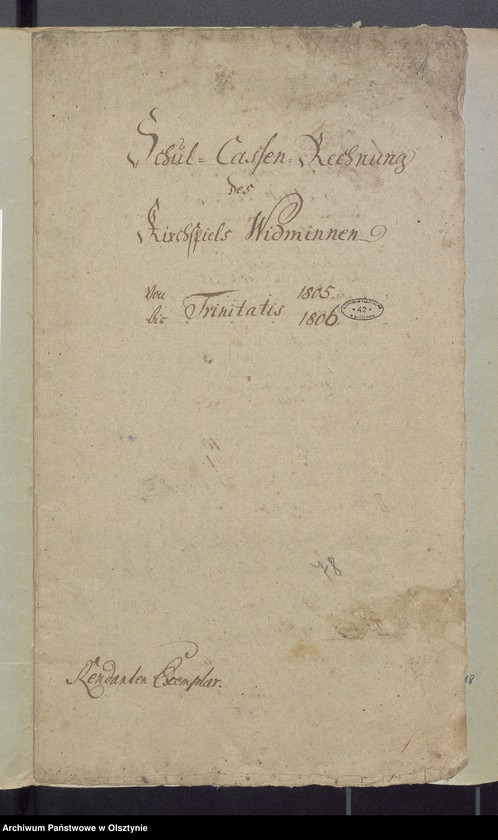 Schul-Cassen-Rechnung
des
Kirchspiels Widminnen
von Trinitatis 1805.
bis 1806.
42
78
Rendanten Exemplar.
18
Archiwum Państwowe w Olsztynie